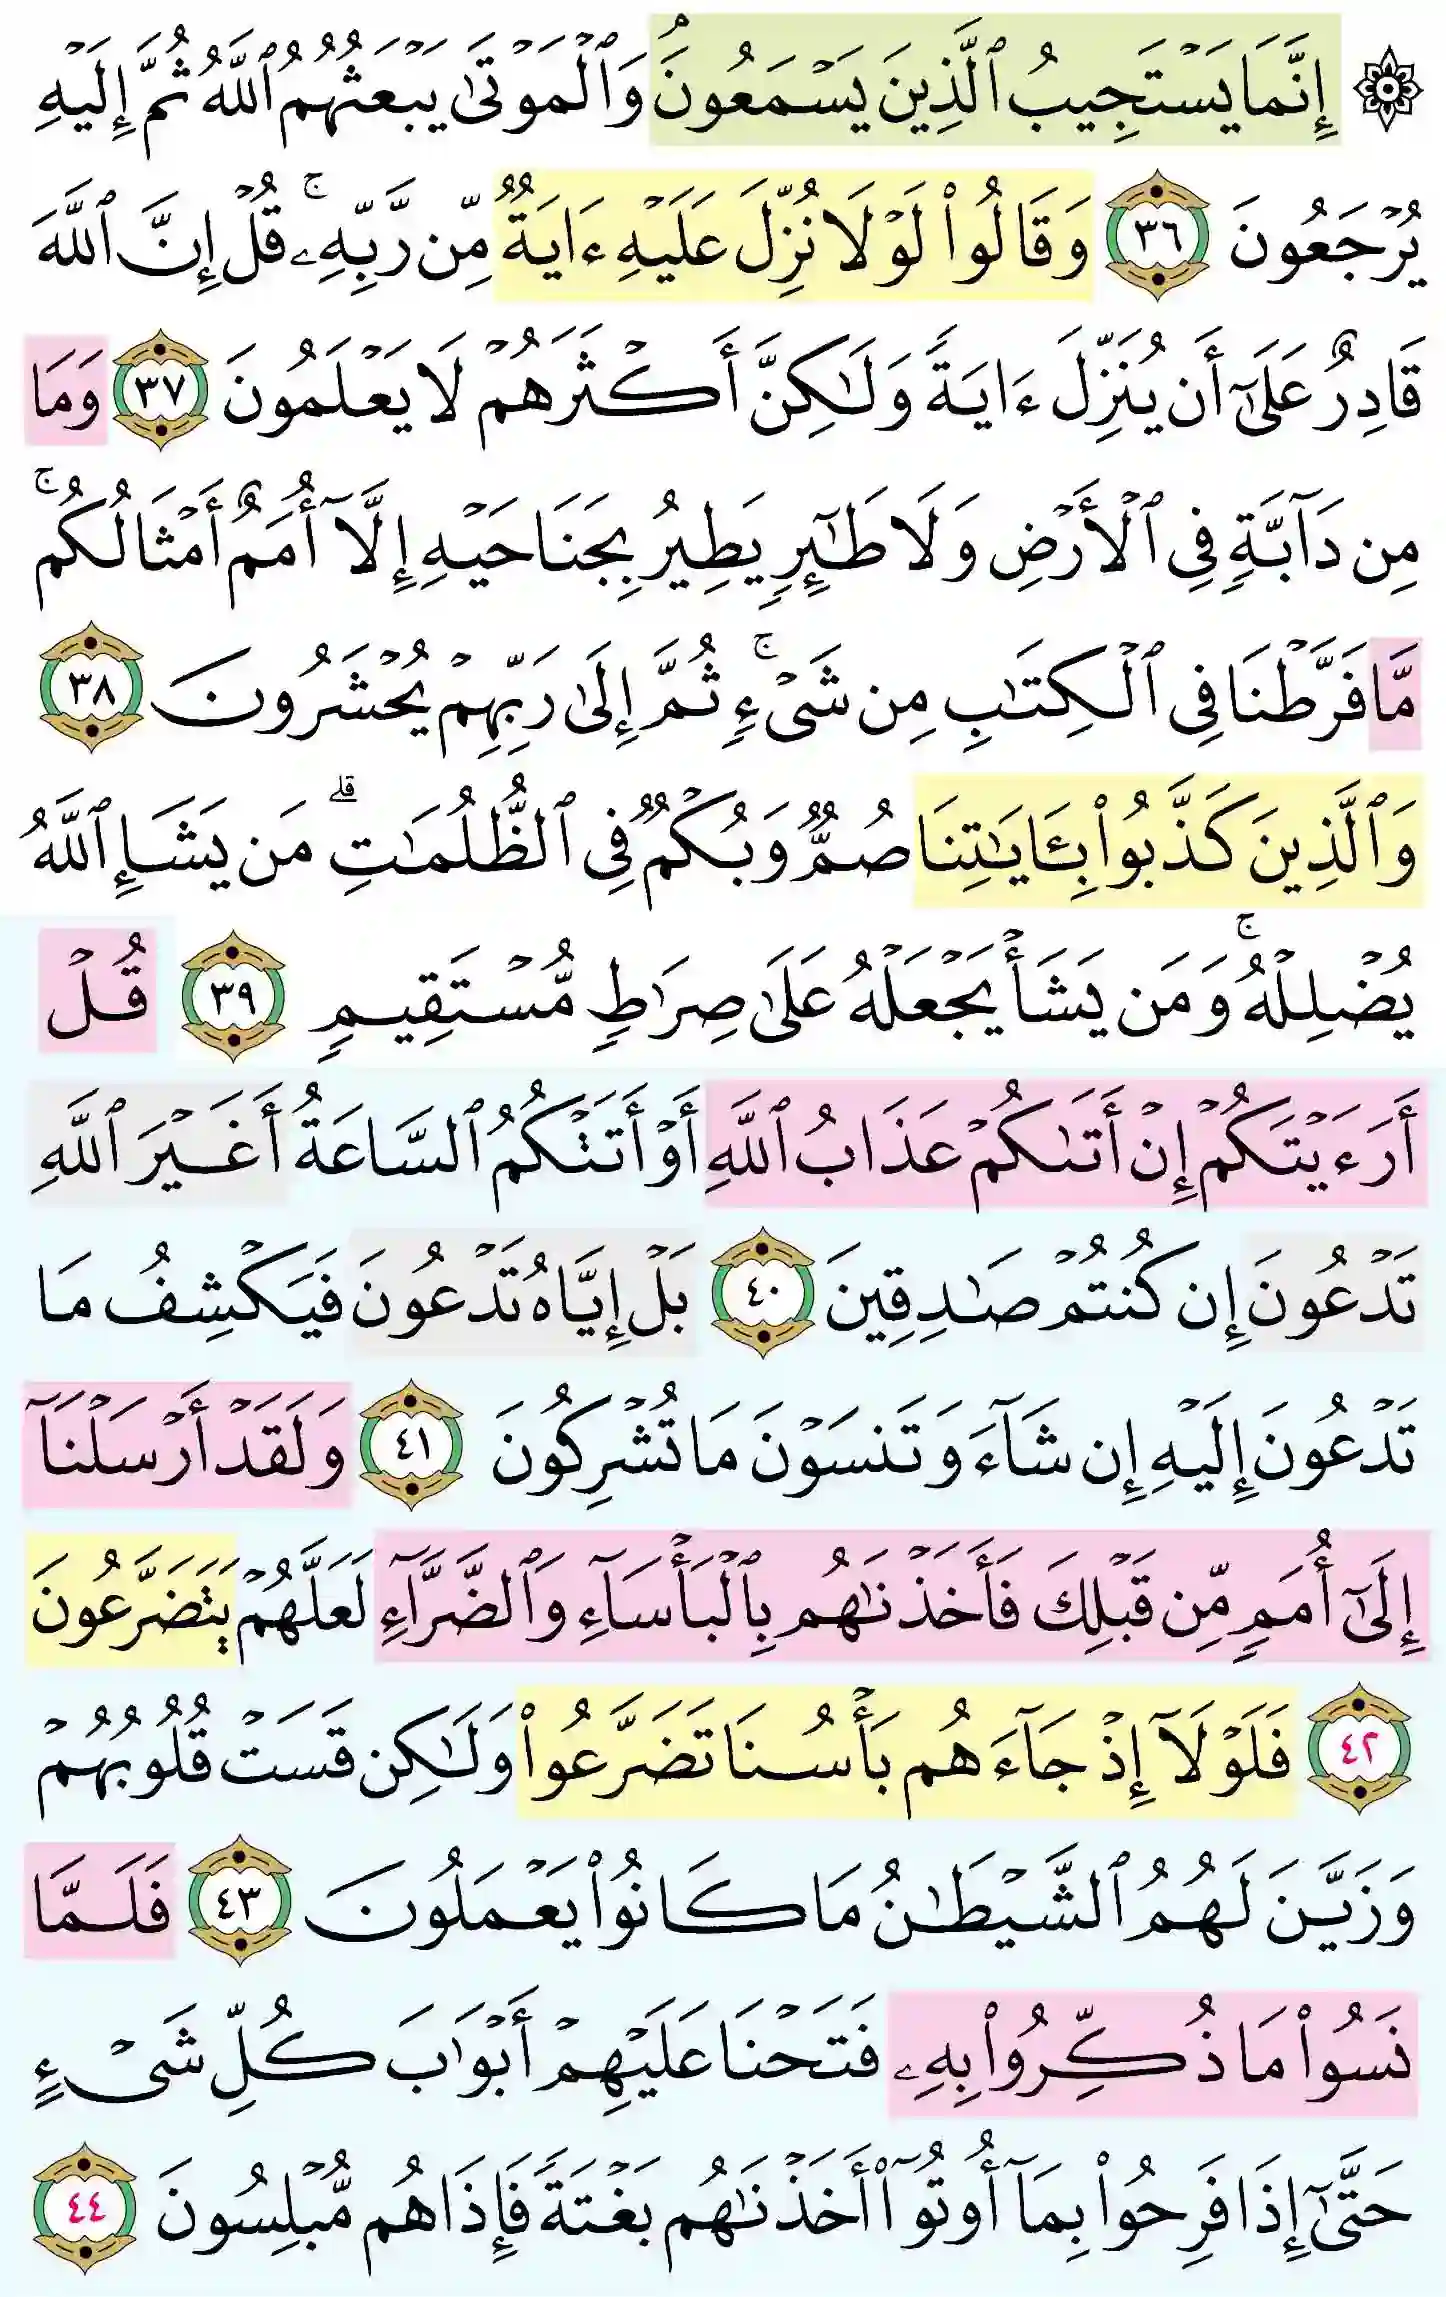 ۞ إِنَّمَا يَسْتَجِيبُ ٱلَّذِينَ يَسْمَعُونَۘ وَٱلْمَوْتَىٰ يَبْعَثُهُمُ ٱللَّهُ ثُمَّ إِلَيْهِ
يُرْجَعُونَ ٣٦ وَقَالُوا۟ لَوْلَا نُزِّلَ عَلَيْهِ ءَايَةٌ مِّن رَّبِّهِۦۚ قُلْ إِنَّ ٱللَّهَ
قَادِرٌ عَلَىٰٓ أَن يُنَزِّلَ ءَايَةً وَلَٰكِنَّ أَكْثَرَهُمْ لَا يَعْلَمُونَ ٣٧ وَمَا
مِن دَآبَّةٍ فِى ٱلْأَرْضِ وَلَا طَٰٓئِرٍ يَطِيرُ بِجَنَاحَيْهِ إِلَّآ أُمَمٌ أَمْثَالُكُمۚ
مَّا فَرَّطْنَا فِى ٱلْكِتَٰبِ مِن شَىْءٍۚ ثُمَّ إِلَىٰ رَبِّهِمْ يُحْشَرُونَ ٣٨
وَٱلَّذِينَ كَذَّبُوا۟ بِـَٔايَٰتِنَا صُمٌّ وَبُكْمٌ فِى ٱلظُّلُمَٰتِۗ مَن يَشَإِ ٱللَّهُ
يُضْلِلْهُۚ وَمَن يَشَأْ يَجْعَلْهُ عَلَىٰ صِرَٰطٍ مُّسْتَقِيمٍ ٣٩ قُلْ
أَرَءَيْتَكُمْ إِنْ أَتَىٰكُمْ عَذَابُ ٱللَّهِ أَوْ أَتَتْكُمُ ٱلسَّاعَةُ أَغَيْرَ ٱللَّهِ
تَدْعُونَ إِن كُنتُمْ صَٰدِقِينَ ٤٠ بَلْ إِيَّاهُ تَدْعُونَ فَيَكْشِفُ مَا
تَدْعُونَ إِلَيْهِ إِن شَآءَ وَتَنسَوْنَ مَا تُشْرِكُونَ ٤١ وَلَقَدْ أَرْسَلْنَآ
إِلَىٰٓ أُمَمٍ مِّن قَبْلِكَ فَأَخَذْنَٰهُم بِٱلْبَأْسَآءِ وَٱلضَّرَّآءِ لَعَلَّهُمْ يَتَضَرَّعُونَ
٤٢ فَلَوْلَآ إِذْ جَآءَهُم بَأْسُنَا تَضَرَّعُوا۟ وَلَٰكِن قَسَتْ قُلُوبُهُمْ
وَزَيَّنَ لَهُمُ ٱلشَّيْطَٰنُ مَا كَانُوا۟ يَعْمَلُونَ ٤٣ فَلَمَّا
نَسُوا۟ مَا ذُكِّرُوا۟ بِهِۦ فَتَحْنَا عَلَيْهِمْ أَبْوَٰبَ كُلِّ شَىْءٍ
حَتَّىٰٓ إِذَا فَرِحُوا۟ بِمَآ أُوتُوٓا۟ أَخَذْنَٰهُم بَغْتَةً فَإِذَا هُم مُّبْلِسُونَ ٤٤